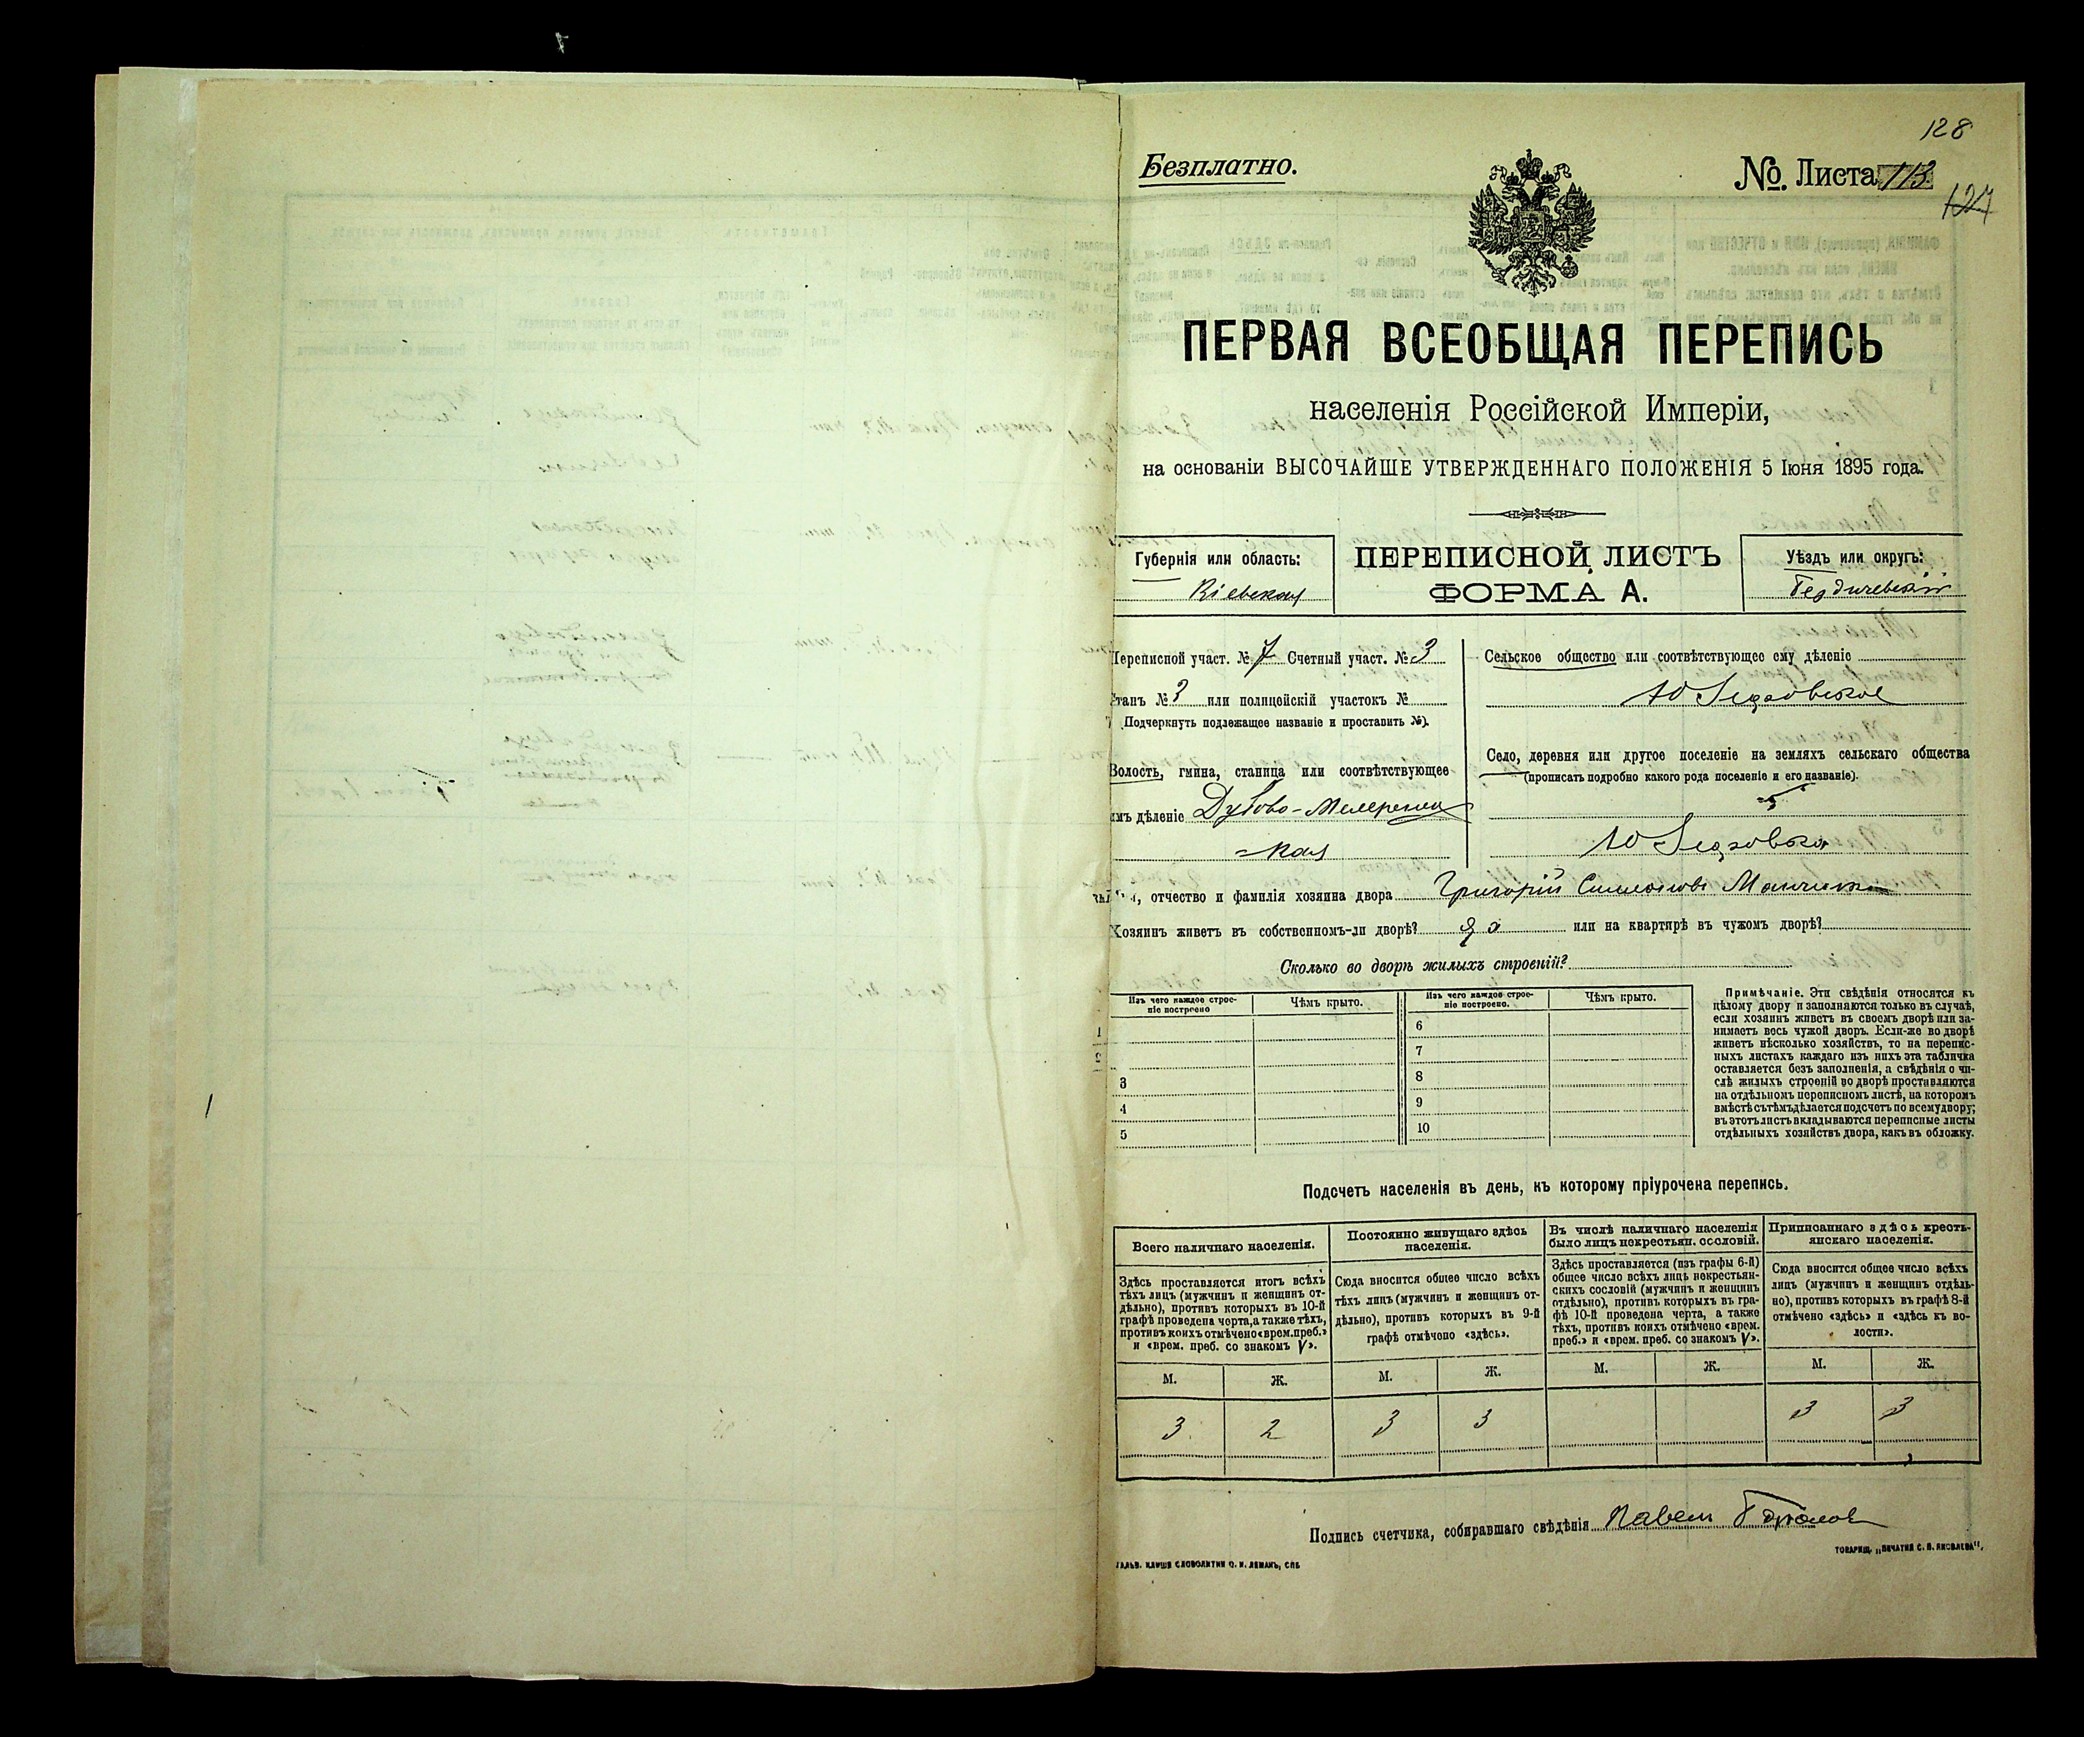 128
Безплатно.
№ Листа 113
127
ПЕРВАЯ ВСЕОБЩАЯ ПЕРЕПИСЬ
населенія Россійской Имперіи,
на основаніи ВЫСОЧАЙШЕ УТВЕРЖДЕННАГО ПОЛОЖЕНІЯ 5 Іюня 1895 года.
Губернія или область:
Кіевская
ПЕРЕПИСНОЙ ЛИСТЪ
ФОРМА А.
Уѣздъ или округъ:
Бердичевскій
Переписной участ. № 7 Счетный участ. № 3
Станъ № 3 или полицейскій участокъ №
(Подчеркнуть подлежащее названіе и проставить №).
Волость, гмина, станица или соотвѣтствующее
имъ дѣленіе
Сельское общество или соотвѣтствующее ему дѣленіе
Село, деревня или другое поселеніе на земляхъ сельскаго общества
(прописать подробно какого рода поселеніе и его названіе).
, отчество и фамилія хозяина двора Григорій
Хозяинъ живетъ въ собственномъ-ли дворѣ? да или на квартирѣ въ чужомъ дворѣ?
Сколько во дворѣ жилыхъ строеній?
Изъ чего каждое строе-
ніе построено
Чѣмъ крыто.
Изъ чего каждое строе-
ніе построено.
Чѣмъ крыто.
1
2
3
4
5
6
7
8
9
10
Примѣчаніе. Эти свѣдѣнія относятся къ
цѣлому двору и заполняются только въ случаѣ,
если хозяинъ живетъ въ своемъ дворѣ или за-
нимаетъ весь чужой дворъ. Если-же во дворѣ
живетъ нѣсколько хозяйствъ, то на перепис-
ныхъ листахъ каждаго изъ нихъ эта табличка
оставляется безъ заполненія, а свѣдѣнія о чи-
слѣ жилыхъ строеній во дворѣ проставляются
на отдѣльномъ переписномъ листѣ, на которомъ
вмѣстѣ съ тѣмъ дѣлается подсчетъ по всему двору;
въ этотъ листъ вкладываются переписные листы
отдѣльныхъ хозяйствъ двора, какъ въ обложку.
Подсчетъ населенія въ день, къ которому пріурочена перепись.
Всего наличнаго населенія.
Здѣсь проставляется итогъ всѣхъ
тѣхъ лицъ (мужчинъ и женщинъ от-
дѣльно), противъ которыхъ въ 10-й
графѣ проведена черта, а также тѣхъ,
противъ коихъ отмѣчено «врем. преб.»
и «врем. преб. со знакомъ V».
Постоянно живущаго здѣсь
населенія.
Сюда вносится общее число всѣхъ
тѣхъ лицъ (мужчинъ и женщинъ от-
дѣльно), противъ которыхъ въ 9-й
графѣ отмѣчено «здѣсь».
Въ числѣ наличнаго населенія
было лицъ некрестьян. сословій.
Здѣсь проставляется (изъ графы 6-й)
общее число всѣхъ лицъ некрестьян-
скихъ сословій (мужчинъ и женщинъ
отдѣльно), противъ которыхъ въ гра-
фѣ 10-й проведена черта, а также
тѣхъ, противъ коихъ отмѣчено «врем.
преб.» и «врем. преб. со знакомъ V».
Приписаннаго здѣсь кресть-
янскаго населенія.
Сюда вносится общее число всѣхъ
лицъ (мужчинъ и женщинъ отдѣль-
но), противъ которыхъ въ графѣ 8-й
отмѣчено «здѣсь» и «здѣсь къ во-
лости».
М. Ж. М. Ж. М. Ж. М. Ж.
3 2 3 3 3 3
Подпись счетчика, собиравшаго свѣдѣнія Павелъ
ГАЛЬВ. КЛИШЕ СЛОВОЛИТНИ О. И. ЛЕМАНЪ, СПБ.
ТОВАРИЩ. „ПЕЧАТНЯ С. П. ЯКОВЛЕВА“.